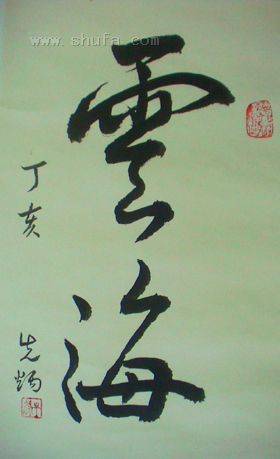 雲海
丁亥
先炀
http://www.shufa.com